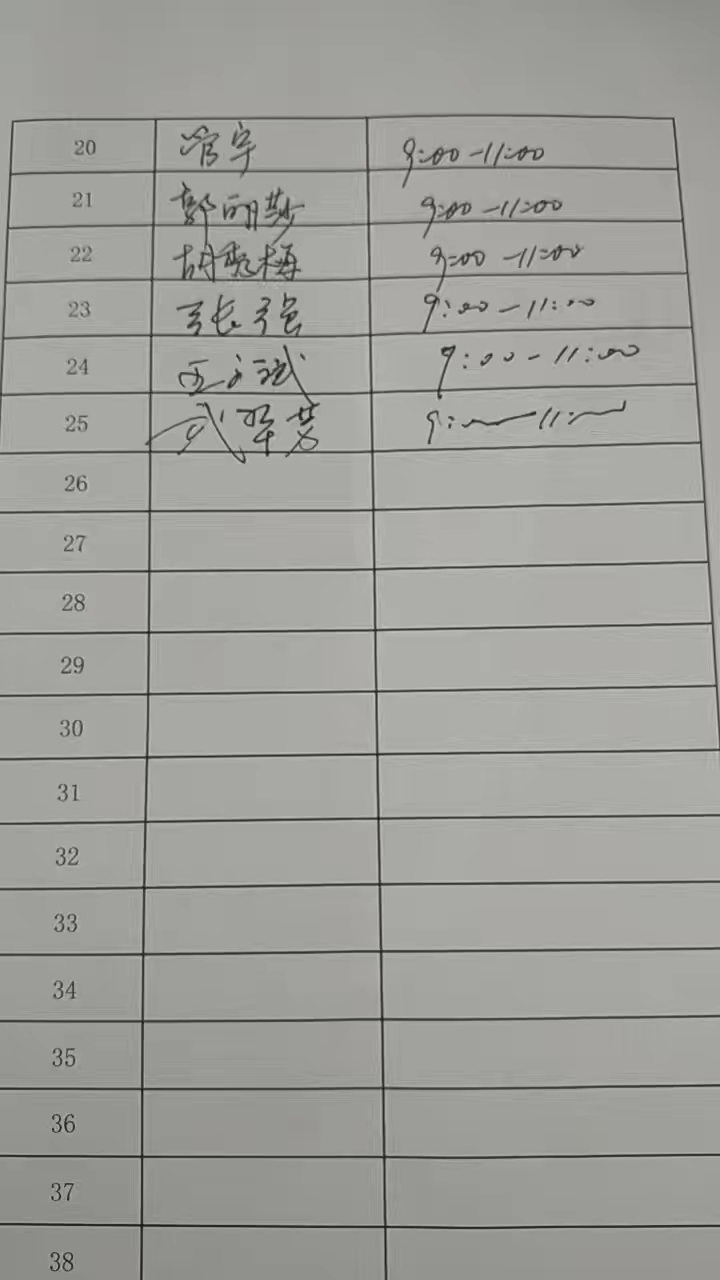 20 管宇 9:00-11:00
21 郭明莎 9:00-11:00
22 胡秀梅 9:00-11:00
23 张强 9:00-11:00
24 王文斌 9:00-11:00
25 武翠芳 9:
26
27
28
29
30
31
32
33
34
35
36
37
38